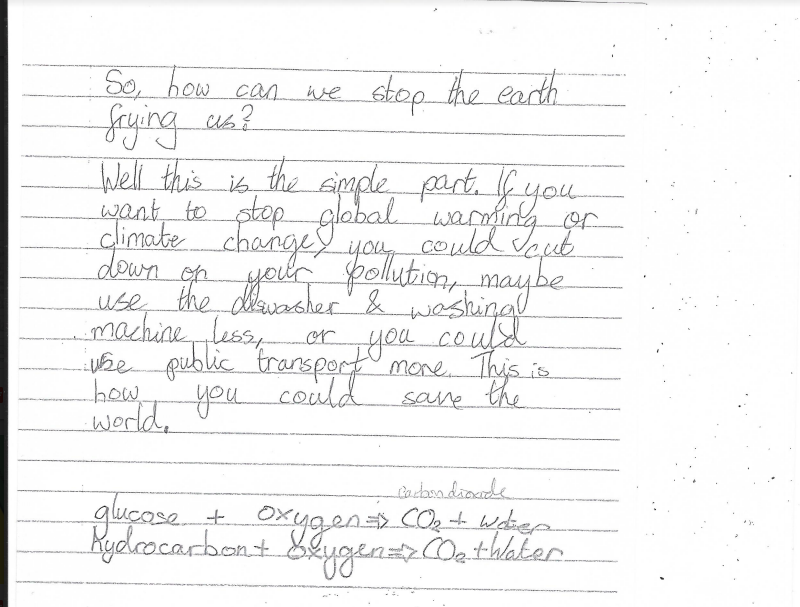 So, how can we stop the earth
frying us?
Well this is the simple part. If you
want to stop global warming or
climate change, you could cut
down on your pollution, maybe
use the diswasher & washing
machine less, or you could
use public transport more. This is
how you could save the
world.
carbon dioxide
glucose + oxygen ⇒ CO2 + water
hydrocarbon + oxygen ⇒ CO2 + Water